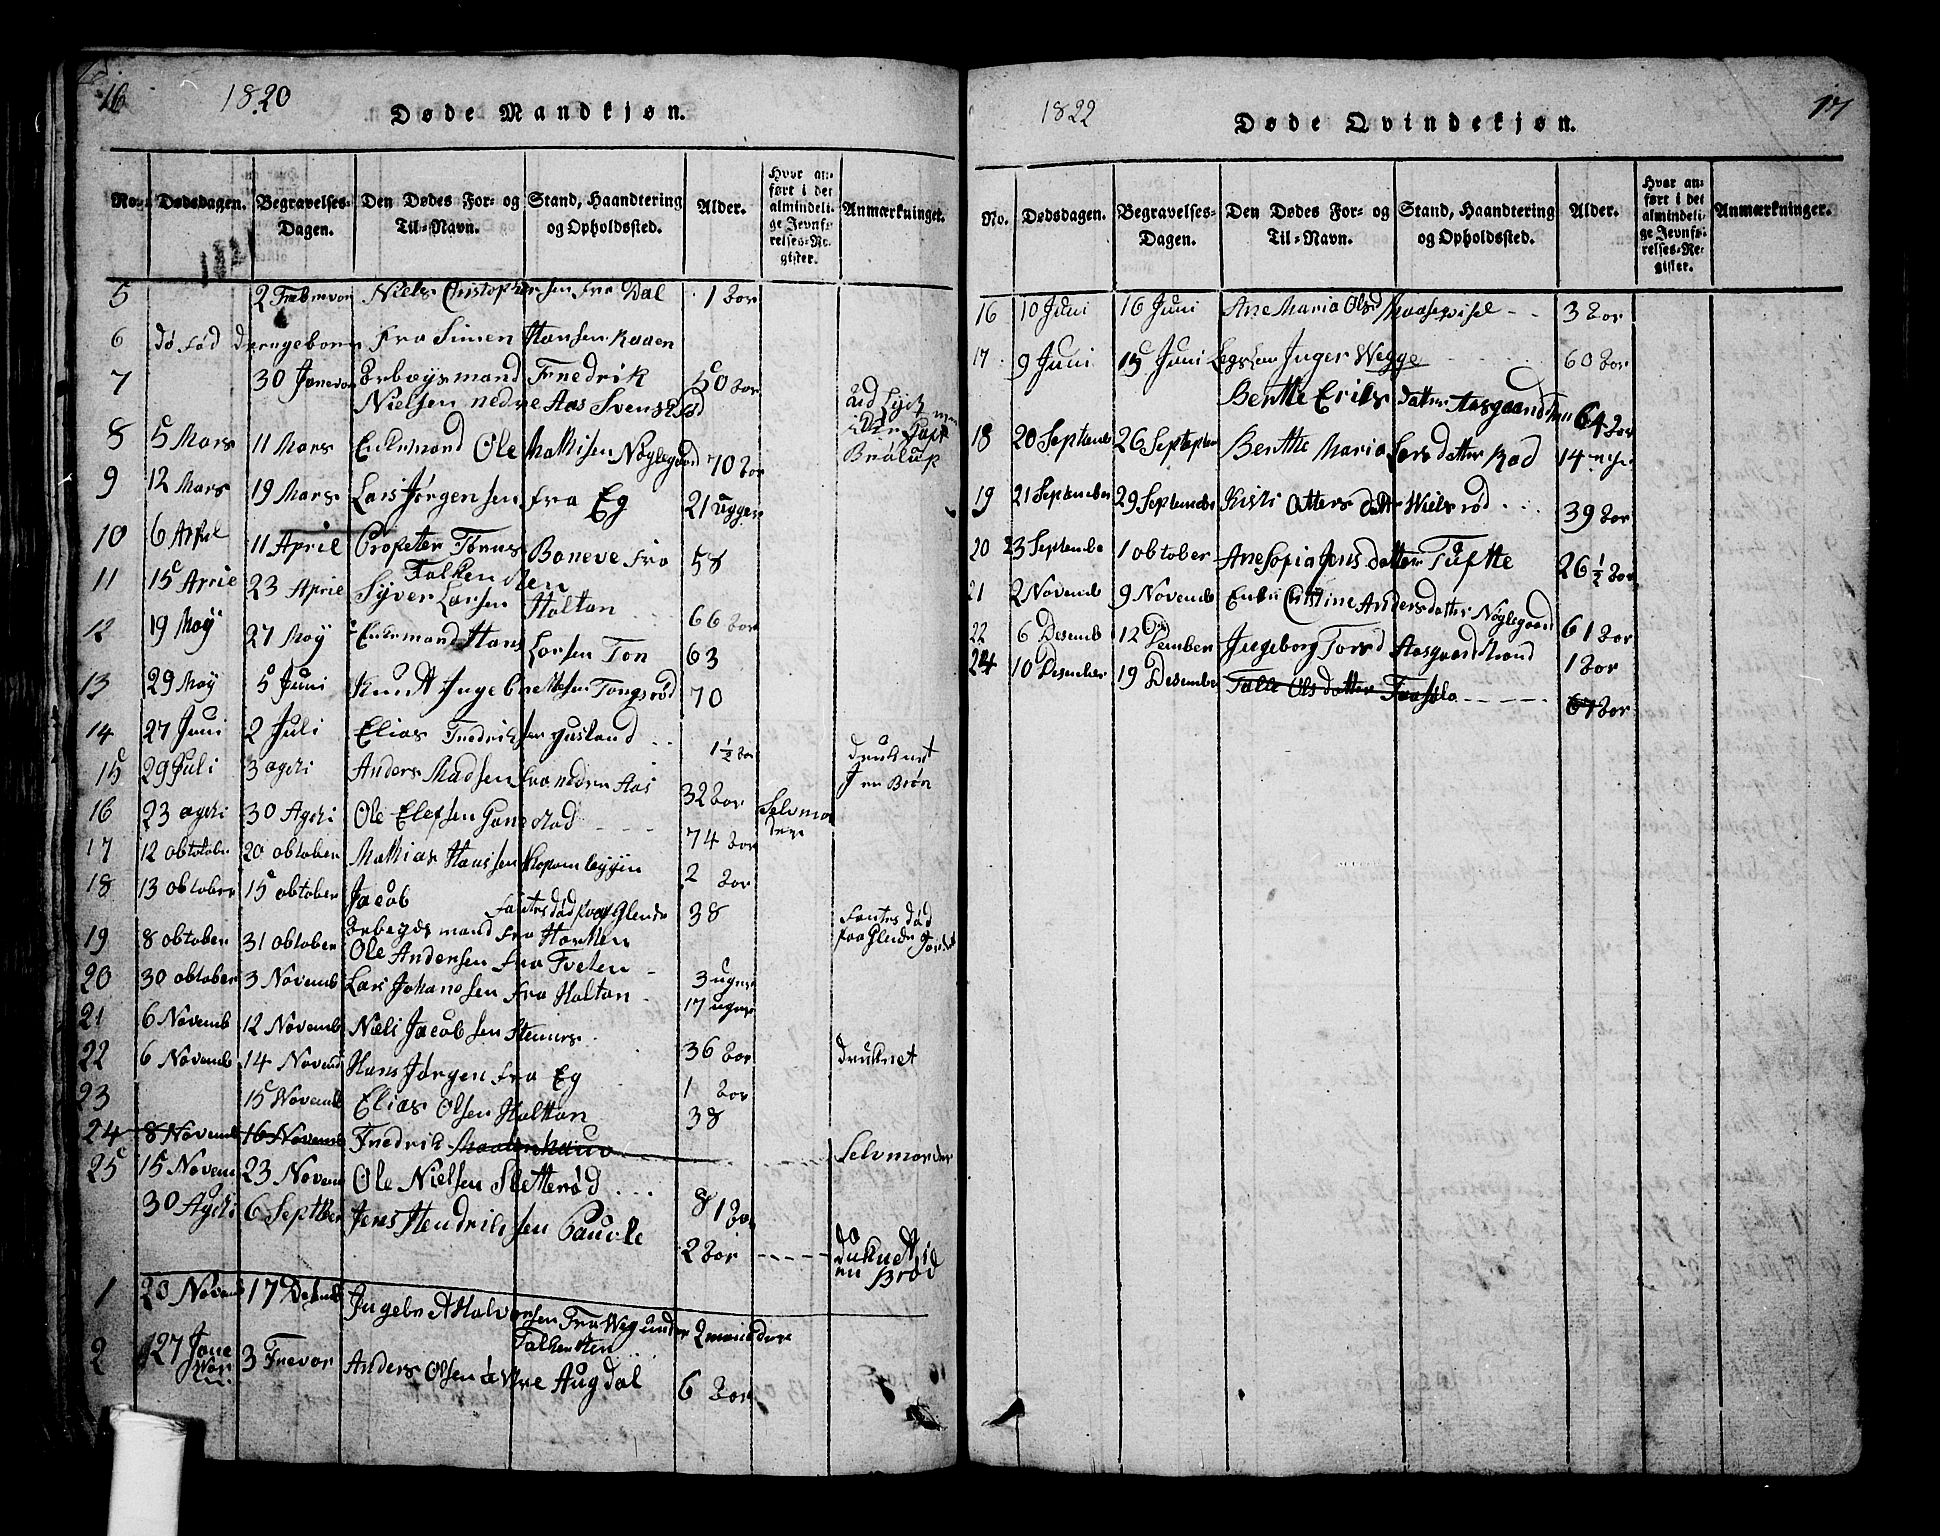 16
1820
Døde Mandkjøn.
No. Dødsdagen. Begravelses-Dagen. Den Dødes For- og Til-Navn. Stand, Haandtering og Opholdssted. Alder. Hvor anført i det almindelige Jevnførelses-Register. Anmærkninger.
5 2 Febrevor Niels Cristophersen fra Dal 1 Aar
6 dø Fød drengebonn Fra Simen Hansen Kaaen
7 30 Janevor Arbøysmand Frederik 50 Aar
Nielsen nedre Aas Svensrød
8 5 Mars 11 Mars Enkemand Ole Mathisen Nøglegaard 70 Aar
9 12 Mars 19 Mars Lars Jørgensen fra Eg 21 Ugger
10 6 April 11 April Boneve Fra 58
Falkensten
11 15 Aprie 23 Aprie Syver Larsen Holtan 66 Aar
12 19 Moÿ 27 Moÿ Enkemand Hans Larsen Ton 63
13 29 Moÿ 5 Juni Knudt Ingebrettsen Tongsrød 70
14 27 Juni 2 Juli Elias Fredriksen Gusland 1½ Aar
druknet
15 29 Juli 3 Agsti Anders Madsen fra nedre Aas 32 Aar
J en Brøn
16 23 agsti 30 Agsti Ole Elefsen Gonestad 74 Aar Selvmordere
17 12 obtober 20 obtober Mathias Hansen 2 Aar
18 13 obtober 15 obtober Jacob 38
Arbeysmand fra Horten
19 8 obtober 31 obtober Ole Andersen fra Tveten 3 uger
20 30 obtober 3 Novemb Lars Johansen fra Holtan 17 uger
21 6 Novemb 12 Novemb Niels Jacobsen Stemsrs 36 Aar druknet
22 6 Novemb 14 Novemb Hans Jørgen fra Eg 1 Aar
23 15 Novemb Elias Olsen Holtan 38
24 8 Novemb 16 Novemb Fredrik Selvmorder
25 15 Novem 23 Novem Ole Nielsen Sletterød 81 Aar
30 Agsti 6 Septber Jens Hendriksen Pauvle 2 Aar
druknett i en Brød
1 20 Novem 17 Desemb Ingebrett Halvorsen Fra Weg under Falkensten 2 maaneder
2 27 Jane 3 Frevor Anders Olsen øvre Augdal 6 Aar
1822
Døde Qvindekjøn.
17
No. Dødsdagen. Begravelses-Dagen. Den Dødes For- og Til-Navn. Stand, Haandtering og Opholdssted. Alder. Hvor anført i det almindelige Jevnførelses-Register. Anmærkninger.
16 10 Juni 16 Juni Ane Maria Olsd 3 Aar
17 9 Juni 15 Juni Inger Wegge 60 Aar
Berthe Eriksdatter Aasgaardstran 64 Aar
18 20 Septemb 26 Septemb Berthe Maria Larsdatter Rød 14
19 21 September 29 September Kisti Ottersdatter Wielsrød 39 Aar
20 23 Septembe 1 obtober Ane Sofia Jensdatter Tufte 26½ Aar
21 2 Novemb 9 Novemb Enke Cristine Andersdatter Nøglegaard 61 Aar
22 6 Desemb 12 Desember Ingeborg Torsd Aasgaardstrand 1 Aar
24 10 Desember 19 Desembe Talle Olsdatter 67 Aar